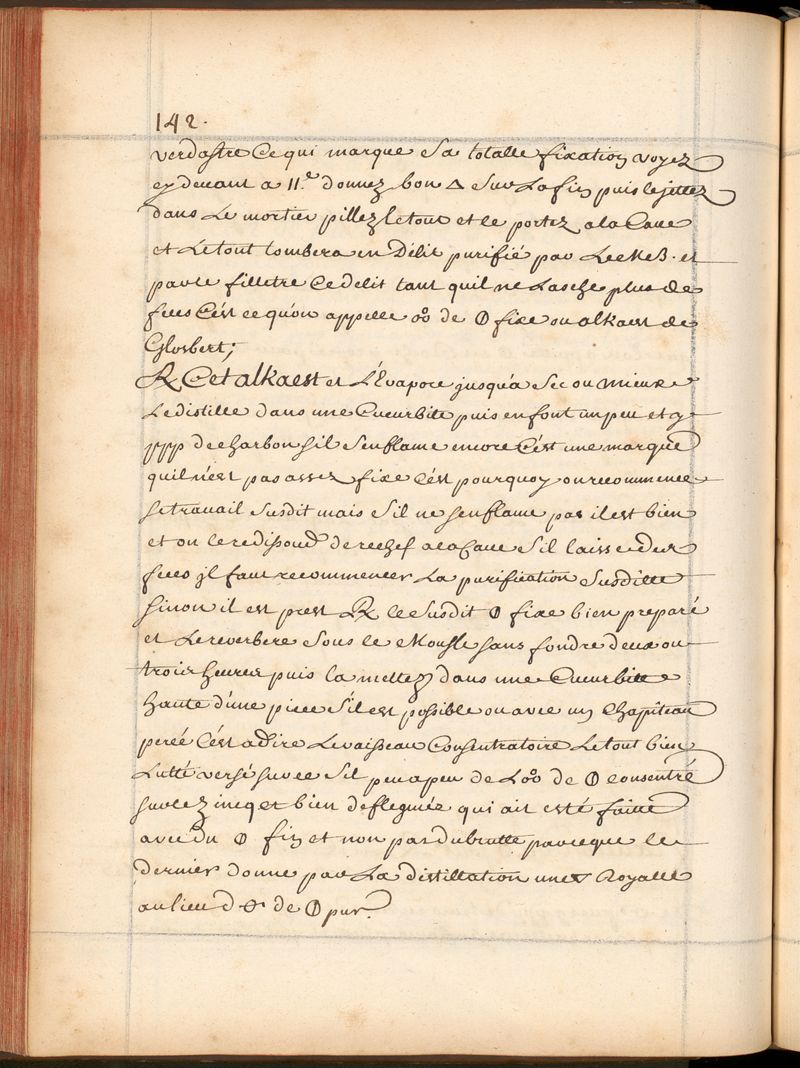 142.
verdastre Ce qui marque Sa totalle fixation voyez
cy devant a 11.e donnez bon △ Sur La fin puis le jettez
dans Le mortier pillez le tout et le portez a la Cave
et Le tout tombera en Délit purifié par et
par le filletre Ce delit tant quil ne Lasche plus de
feces C'est ce qu'on appelle de 🜕 fixe ou alkaest de
Glosbert;
℞ Cet alkaest et L'Evapore jusqu'a Sec ou mieux
Le distille dans une Cucurbite puis en font un peu et y
de charbon s'il S'enflame encore C'est une marque
quil n'est pas assez fixe C'est pourquoy on recommence
le travail Susdit mais S'il ne s'enflame pas il est bien
et on le redissoud derechef a la Cave S'il laisse des
feces jl faut recommencer La purification Susditte
sinon il est prest ℞ le Susdit 🜕 fixe bien preparé
et Le reverbere Sous le Moufle sans fondre deux ou
trois heures puis la mettez dans une Cucurbite
haute d'une piece S'il est possible ou avec un Chapiteau
percé C'est a dire Le vaisseau Consentratoire Le tout bien
Lutté versé sur ce Sel peu a peu de L'oo de 🜕 consentré
sur le zincq et bien deflegmée qui ait esté faitte
avec du 🜕 fin et non pas du brutte parceque le
dernier donne par La distillation une Royalle
au lieu d de 🜕 pur.